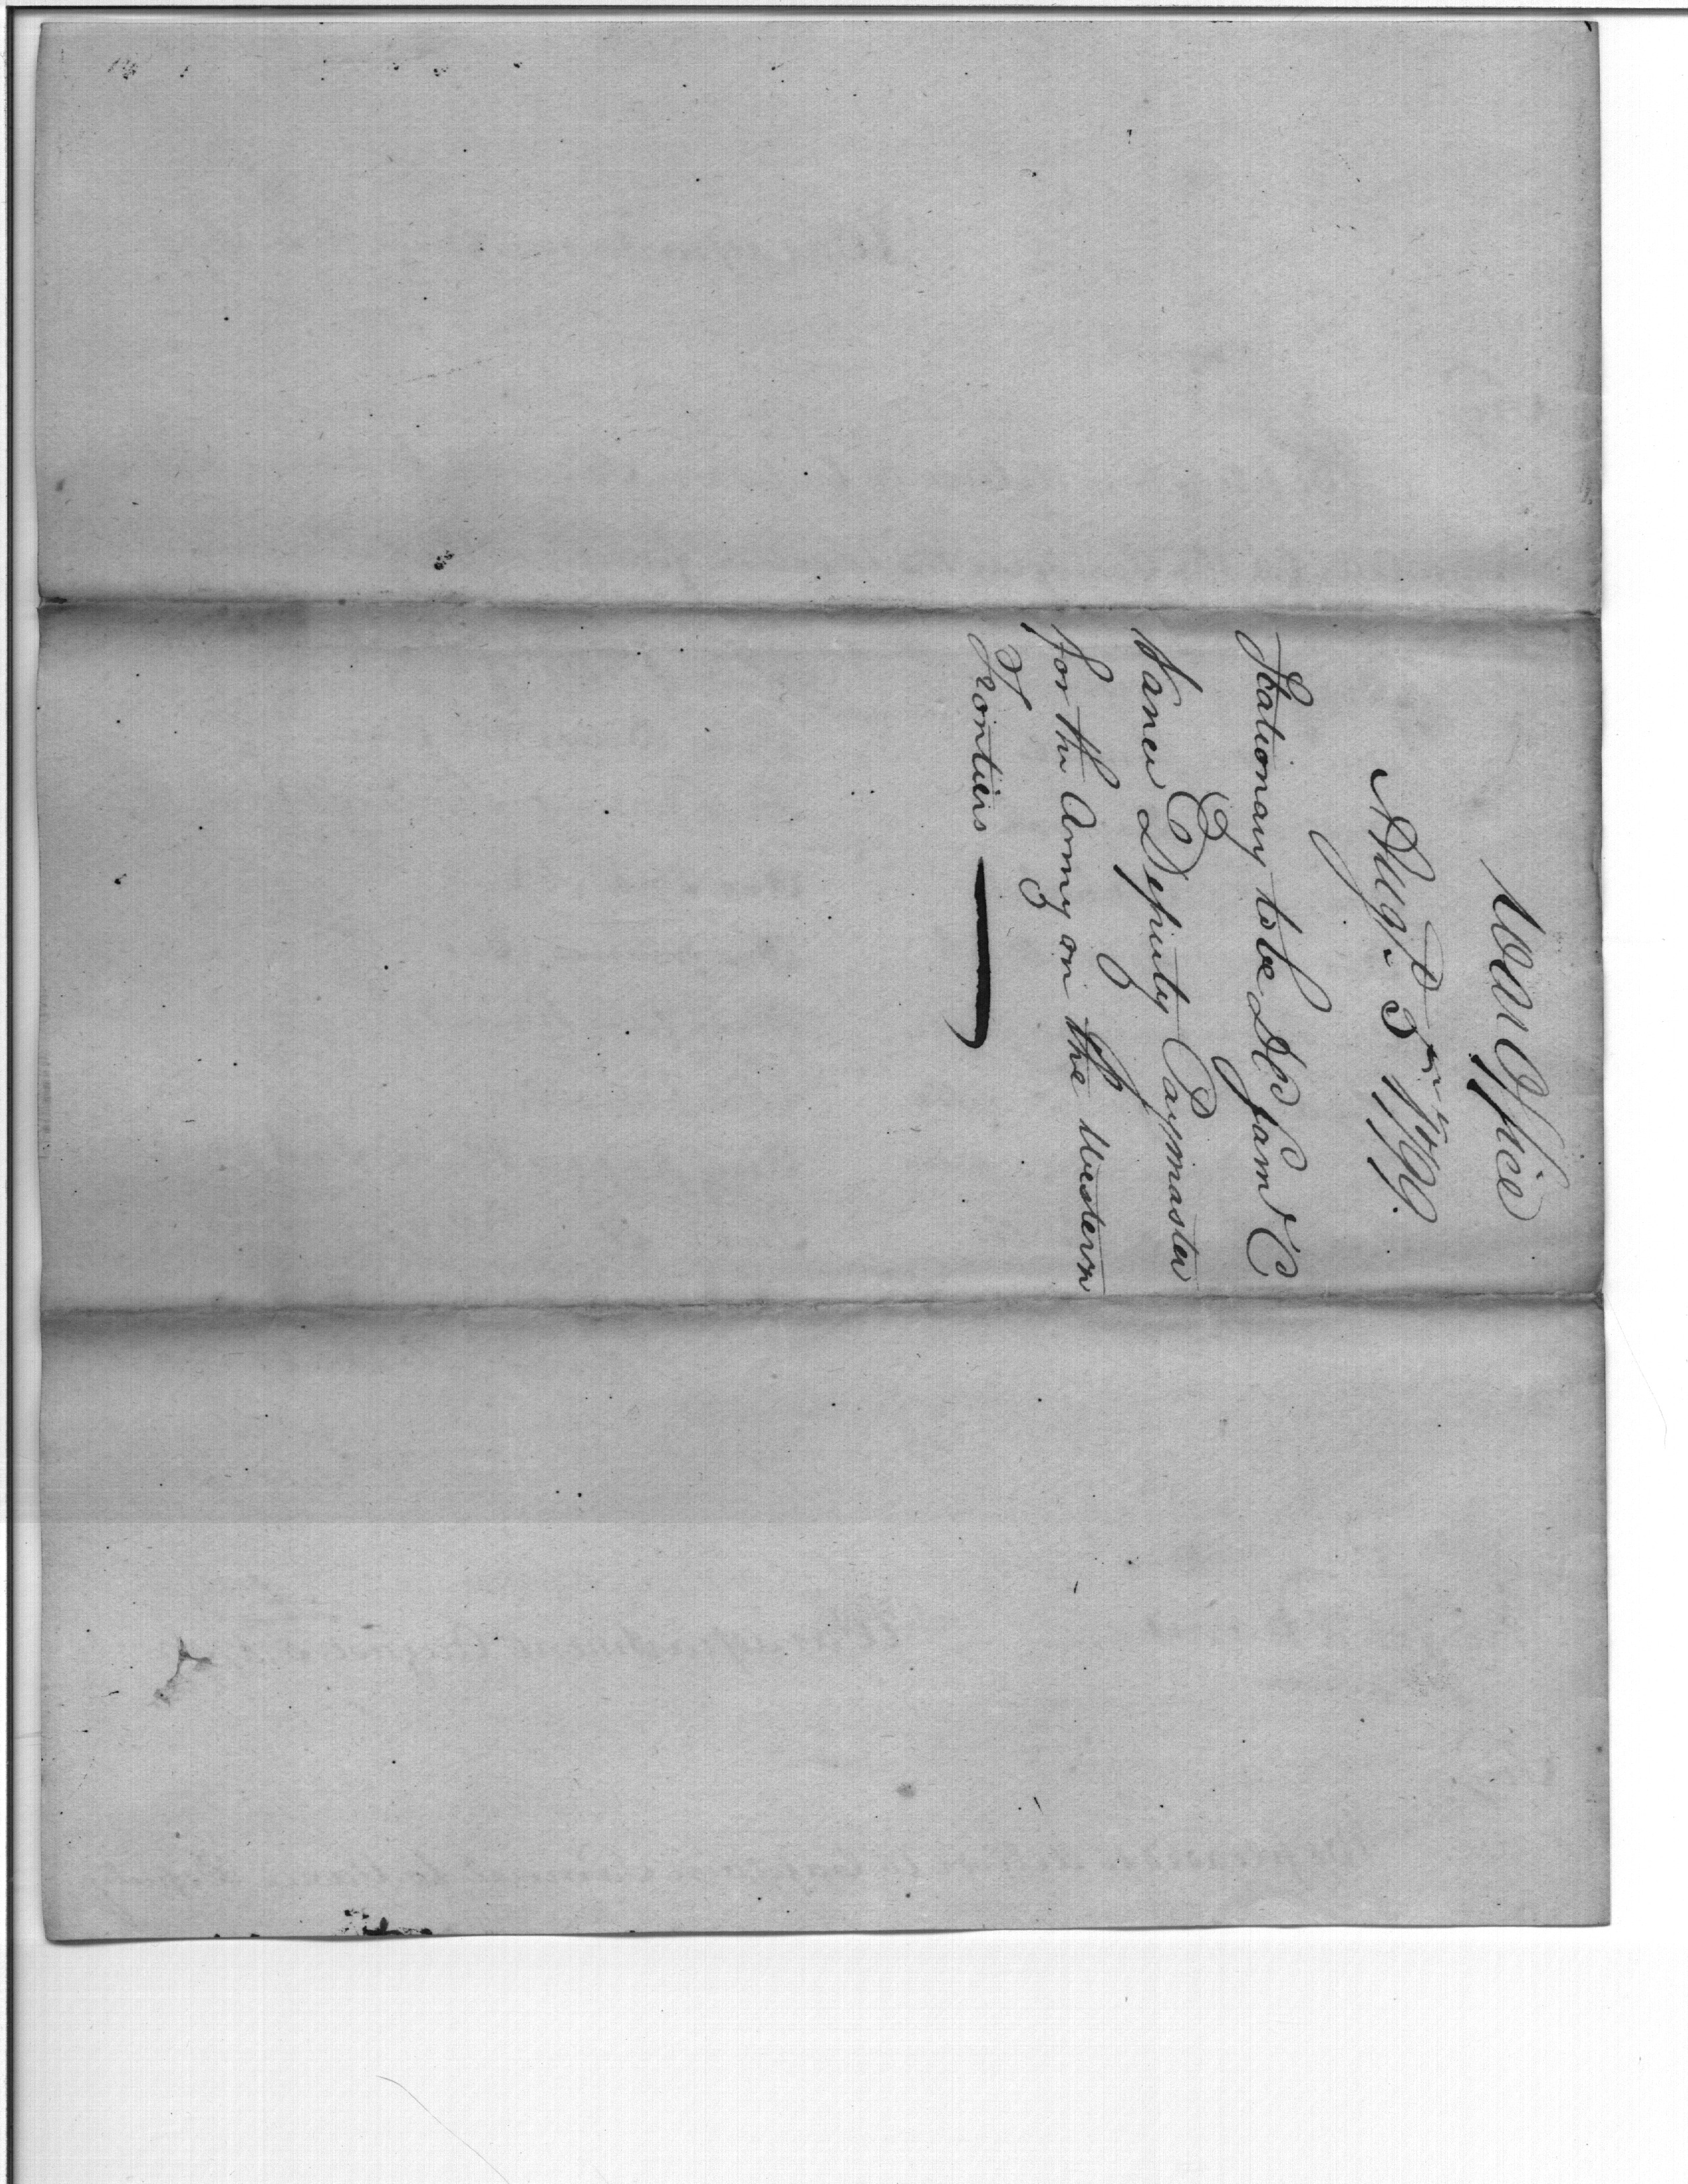 War Office
Augt. 5th 1799.
Stationary to be
Vance Deputy Paymaster
for the Army on the Western
Frontiers